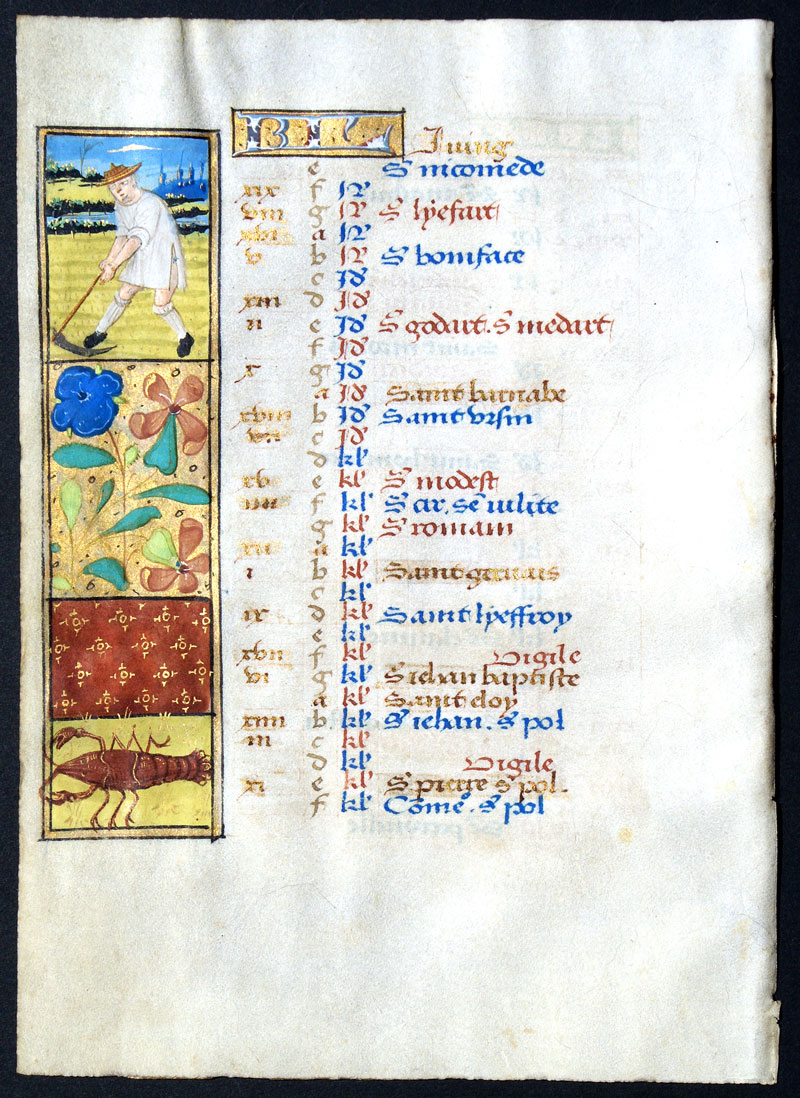 KL Juing
e S nicomede
xix f N
viii g N S lyefart
xvi a N
v b N S boniface
c Id
xiii d Id
ii e Id S godart. S medart
f Id
x g Id
a Id Saint barnabe
xviii b Id Saint Ursin
vii c Id
d kl
xv e kl S modest
iiii f kl S cir. se iulite
g kl S romain
xii a kl
i b kl Saint geruais
c kl
ix d kl Saint lyeffroy
e kl
xvii f kl Vigile
vi g kl S iehan baptiste
a kl Saint eloy
xiiii b kl S iehan. s pol
iii c kl
d kl Vigile
xi e kl S pierre s pol.
f kl Come. s pol